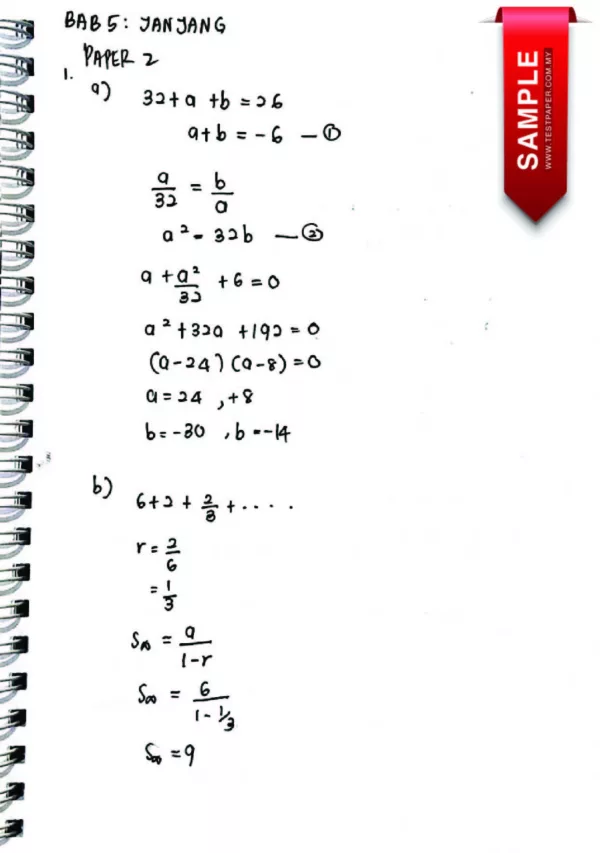 BAB 5: JANJANG
PAPER 2
1.
a) 32 + a + b = 26
a + b = -6 — ①
a/32 = b/a
a² = 32b — ②
a + a²/32 + 6 = 0
a² + 32a + 192 = 0
(a - 24) (a - 8) = 0
a = 24 , +8
b = -30 , b = -14
b) 6 + 2 + 2/3 + ....
r = 2/6
= 1/3
S∞ = a/1-r
S∞ = 6/1 - 1/3
S∞ = 9
SAMPLE
WWW.TESTPAPER.COM.MY